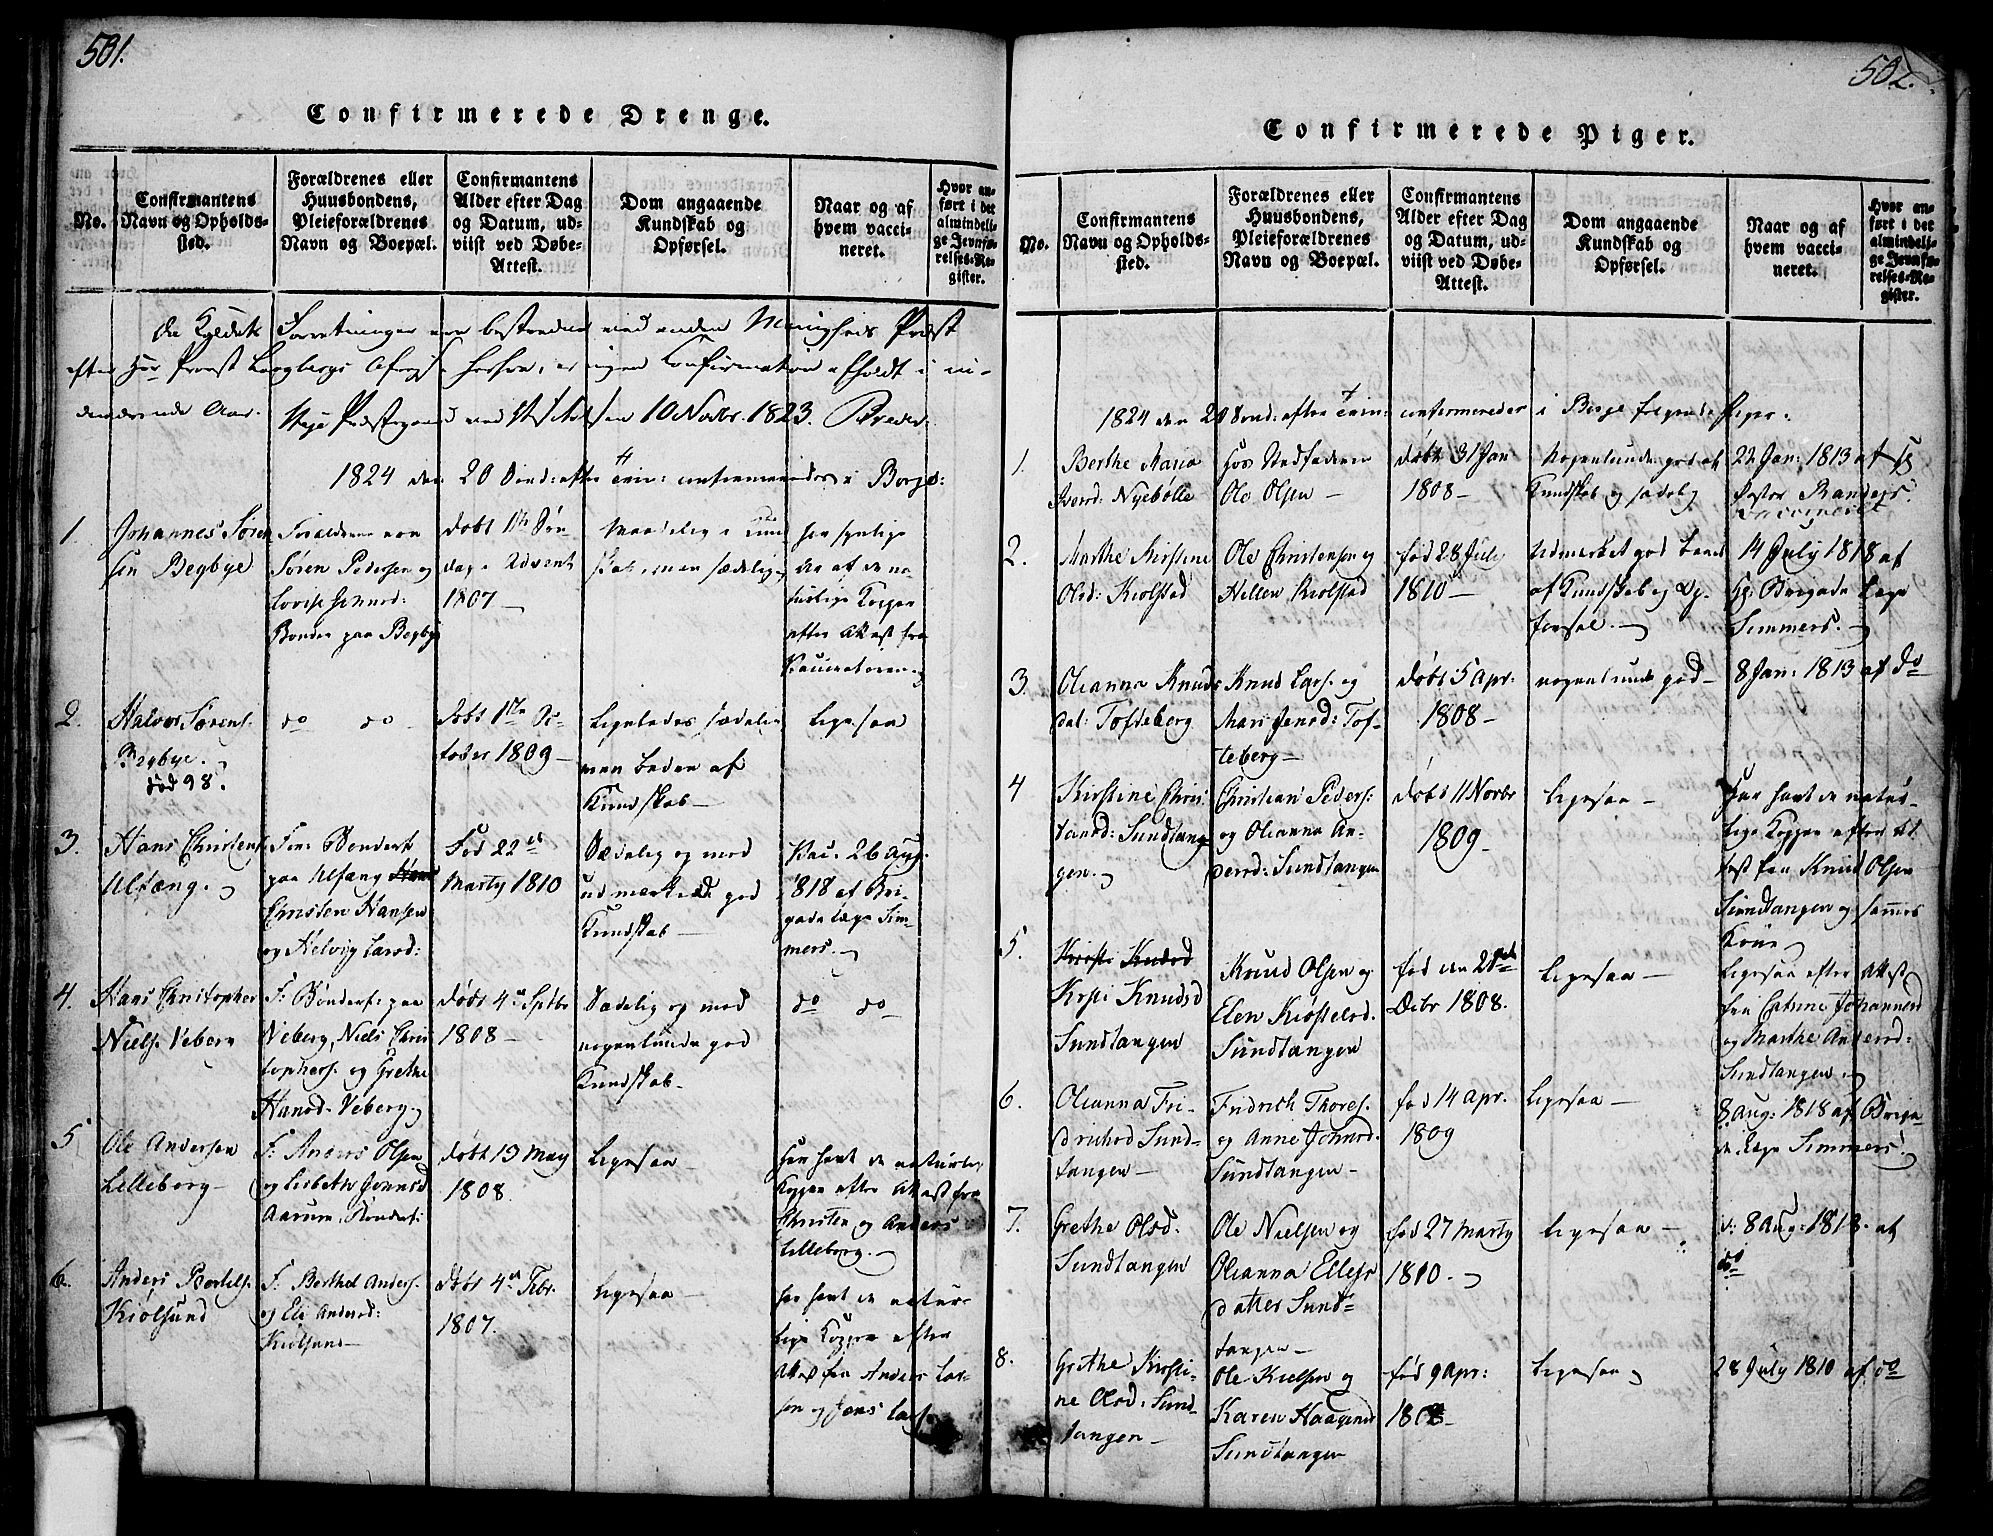 501.
Confirmerede Drenge.
No.
Confirmantens
Navn og Opholds-
sted.
Forældrenes eller
Huusbondens,
Pleieforældrenes
Navn og Boepæl.
Confirmantens
Alder efter Dag
og Datum, ud-
viist ved Døbe-
Attest.
Dom angaaende
Kundskab og
Opførsel.
Naar og af
hvem vacci-
neret.
Hvor an-
ført i det
almindeli-
ge Jevnfø-
relses-Re-
gister.
Forretninger
Menigheds Præst
efter Hør Provst
herfra, er ingen Confirmation afholdt i
Aar.
10 Novbr. 1823.
1824 den 20 Sønd: efter Trin: confirmerides i Borge:
1.
Johannes Søren
sen Begbye
Forældrene ere
Søren Pedersen og
Lovise
Bønder paa Begby
døbt 1te Søn
dag i Advent
1807 —
maadelig i Kund
skab, men sædelig
har synlige
Ar af de na-
turlige Kopper
efter Attest fra
Vaccinatoren
2.
Halvor Sørens.
Begbye.
død 98.
do do
døbt 1te Oc-
tober 1809 —
Ligeledes sædelig
men Leden af
Kundskab —
Ligesaa
3.
Hans Christens
Ulfæng.
For: Bønderf
paa Ulfæng
Christen Hansen
og Helvig Larsd:
Fød 22de
Marty 1810
Sædelig og med
udmærked god
Kundskab —
Vac: 26 Aug.
1818 af Bri-
gadelæge Sim-
mers.
4.
Hans Christopher
Niels. Veberg
F: Bønderf: paa
Veberg, Niels Chris
tophers. og Grethe
Hansd. Veberg
døbt 4de Sptbr
1808 —
Sædelig og med
nogenlunde god
Kundskab.
do do
5
Ole Andersen
Lilleborg —
F: Anders Olsen
og Lisbeth Jonsd
Aarum, Bønderf:
døbt 19 May
1808.
Ligesaa —
har havt de naturlig
Kopper efter Attest fra
Christen og Anders
Lilleborg.
6.
Anders Bertels.
Kiolsund
F: Berthel Anders.
og Eli Andersd:
Kiolsund —
døbt 4de Febr.
1807.
Ligesaa —
har havt de natur-
lige Kopper efter
Attest fra Anders Lar-
sen og Jens Lars.
502.
Confirmerede Piger.
No.
Confirmantens
Navn og Opholds-
sted.
Forældrenes eller
Huusbondens,
Pleieforældrenes
Navn og Boepæl.
Confirmantens
Alder efter Dag
og Datum, ud-
viist ved Døbe-
Attest.
Dom angaaende
Kundskab og
Opførsel.
Naar og af
hvem vacci-
neret.
Hvor an-
ført i det
almindeli-
ge Jevnfø-
relses-Re-
gister.
1824 den 20 Sønd: efter Trin: confirmereder i Borge følgende Piger:
1.
Berthe Maria
Iversd: Nyebølle
Hos Stedfaderen
Ole Olsen —
døbt 31 Jan
1808 —
Nogenlunde god af
Kundskab og sædelig
22 Jan: 1813 af
Pastor
vaccineret
2.
Marthe Kirstine
Olsd: Kiolstad
Ole Christensen og
Hellen Kiolstad
fød 28 July
1810 —
Udmærket god baade
af Kundskab og Op-
førsel.
14 July 1818 af
Hr: Brigade Læge
Simmers.
3.
Oleanna Knuds
dat: Tofteberg
Knud Lars. og
Mari Jensd: Tof-
teberg —
døbt 5 Apr:
1808 —
nogenlunde god —
8 Jan: 1813 af do
4
Kirstine Chris
tiansd: Sundtang
gen.
Christian Peders:
og Oleanna An-
dersd: Sundtangen
døbt 11 Novbr
1809 —
Ligesaa —
Har havt de natur-
lige Kopper efter At-
test fra Knud Olsen
Sundtangen og sammes
Kone
5.
Kirsti Knudsd
Kirsti Knudsd
Sundtangen
Knud Olsen og
Elen Kiøstelsd.
Sundtangen
fød den 21de
Decbr 1808.
Ligesaa —
Ligesaa efter Attest
fra Cathrine Johannesd
og Marthe Andersd:
Sundtangen
6.
Oleanna Fri-
drichsd Sund-
tangen —
Fridrich Thores.
og Anne Johnsd.
Sundtangen —
fød 14 Apr.
1809
Ligesaa —
8 Aug: 1818 af Briga-
de Læge Simmers.
7.
Grethe Olsd.
Sundtangen
Ole Nielsen og
Oleanna Ellefs
datter Sund-
tangen —
fød 27 Marty
1810.
Ligesaa —
d: 8 Aug: 1818. af
do
8.
Grethe Kirsti-
ne Olsd. Sund-
tangen —
Ole Kielsen og
Karen Haagensd
Sundtangen
fød 9 Apr:
1808 —
Ligesaa
28 July 1810 af do